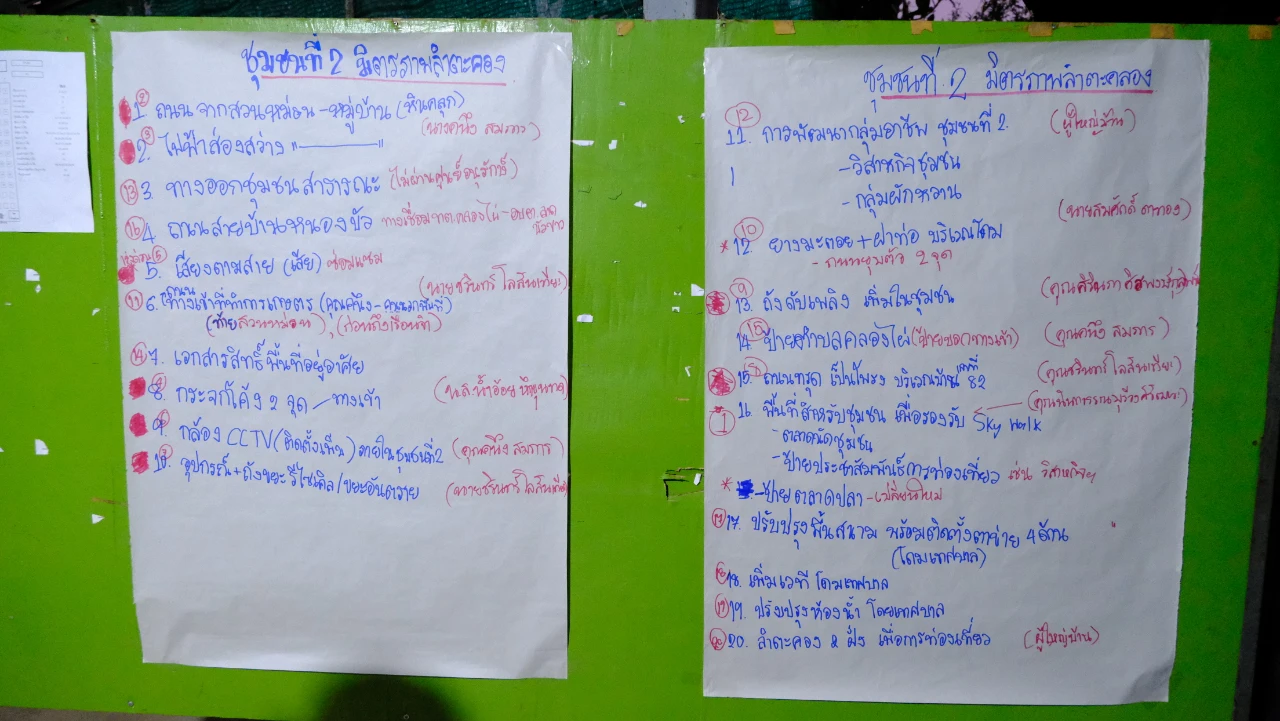 ชุมชนที่ 2 มิตรภาพลำตะคอง
② 1. ถนน จากสวนหม่อน - หมู่บ้าน (หินคลุก)
(นางคนึง สมภาร)
③ 2. ไฟฟ้าส่องสว่าง "————"
⑬ 3. ทางออกชุมชน สาธารณะ (ไม่ผ่านศูนย์อนุรักษ์)
⑯ 4. ถนนสายบ้านหนองบัว
5. เสียงตามสาย (เสีย) ซ่อมแซม
(นายชรินทร์ โลสันเทียะ)
⑪ 6. ถนนทางเข้าที่ทำการเกษตร (คุณคนึง -
(ท้ายสวนหม่อน), (ก่อนถึงเรือนจำ)
⑭ 7. เอกสารสิทธิ์ พื้นที่อยู่อาศัย
8. กระจกโค้ง 2 จุด / ทางเข้า
(น.ส.น้ำอ้อย
9. กล้อง CCTV (ติดตั้งเพิ่ม) ภายในชุมชนที่ 2 (คุณคนึง สมภาร)
10. อุปกรณ์ + ถังขยะ รีไซเคิล / ขยะอันตราย (นายชรินทร์ โลสันเทียะ)
ชุมชนที่ 2 มิตรภาพลำตะคลอง
⑫ 11. การพัฒนากลุ่มอาชีพ ชุมชนที่ 2. (ผู้ใหญ่บ้าน)
- วิสาหกิจชุมชน
- กลุ่มผักหวาน
(นายสมศักดิ์
* ⑩ 12. ยางมะตอย + ฝาท่อ บริเวณโดม
- ถนนยุบตัว 2 จุด
⑨ 13. ถังดับเพลิง เพิ่มในชุมชน
⑮ 14. ป้ายตำบลคลองไผ่ (ป้ายซอยทางเข้า) (คุณคนึง สมภาร)
15. ถนนทรุด เป็นโพรง บริเวณบ้านเลขที่ 82 (คุณชรินทร์ โลสันเทียะ)
① 16. พื้นที่สำหรับชุมชน เพื่อรองรับ Sky walk
- ตลาดนัดชุมชน
- ป้ายประชาสัมพันธ์การท่องเที่ยว เช่น วิสาหกิจฯ
* - ป้าย ตลาดปลา - เปลี่ยนใหม่
17. ปรับปรุงพื้นสนาม พร้อมติดตั้งตาข่าย 4 ด้าน
(โดมเทศบาล)
18. เพิ่มเวที โดมเทศบาล
19. ปรับปรุงห้องน้ำ โดมเทศบาล
⑳ 20. ลำตะคอง 2 ฝั่ง เพื่อการท่องเที่ยว (ผู้ใหญ่บ้าน)